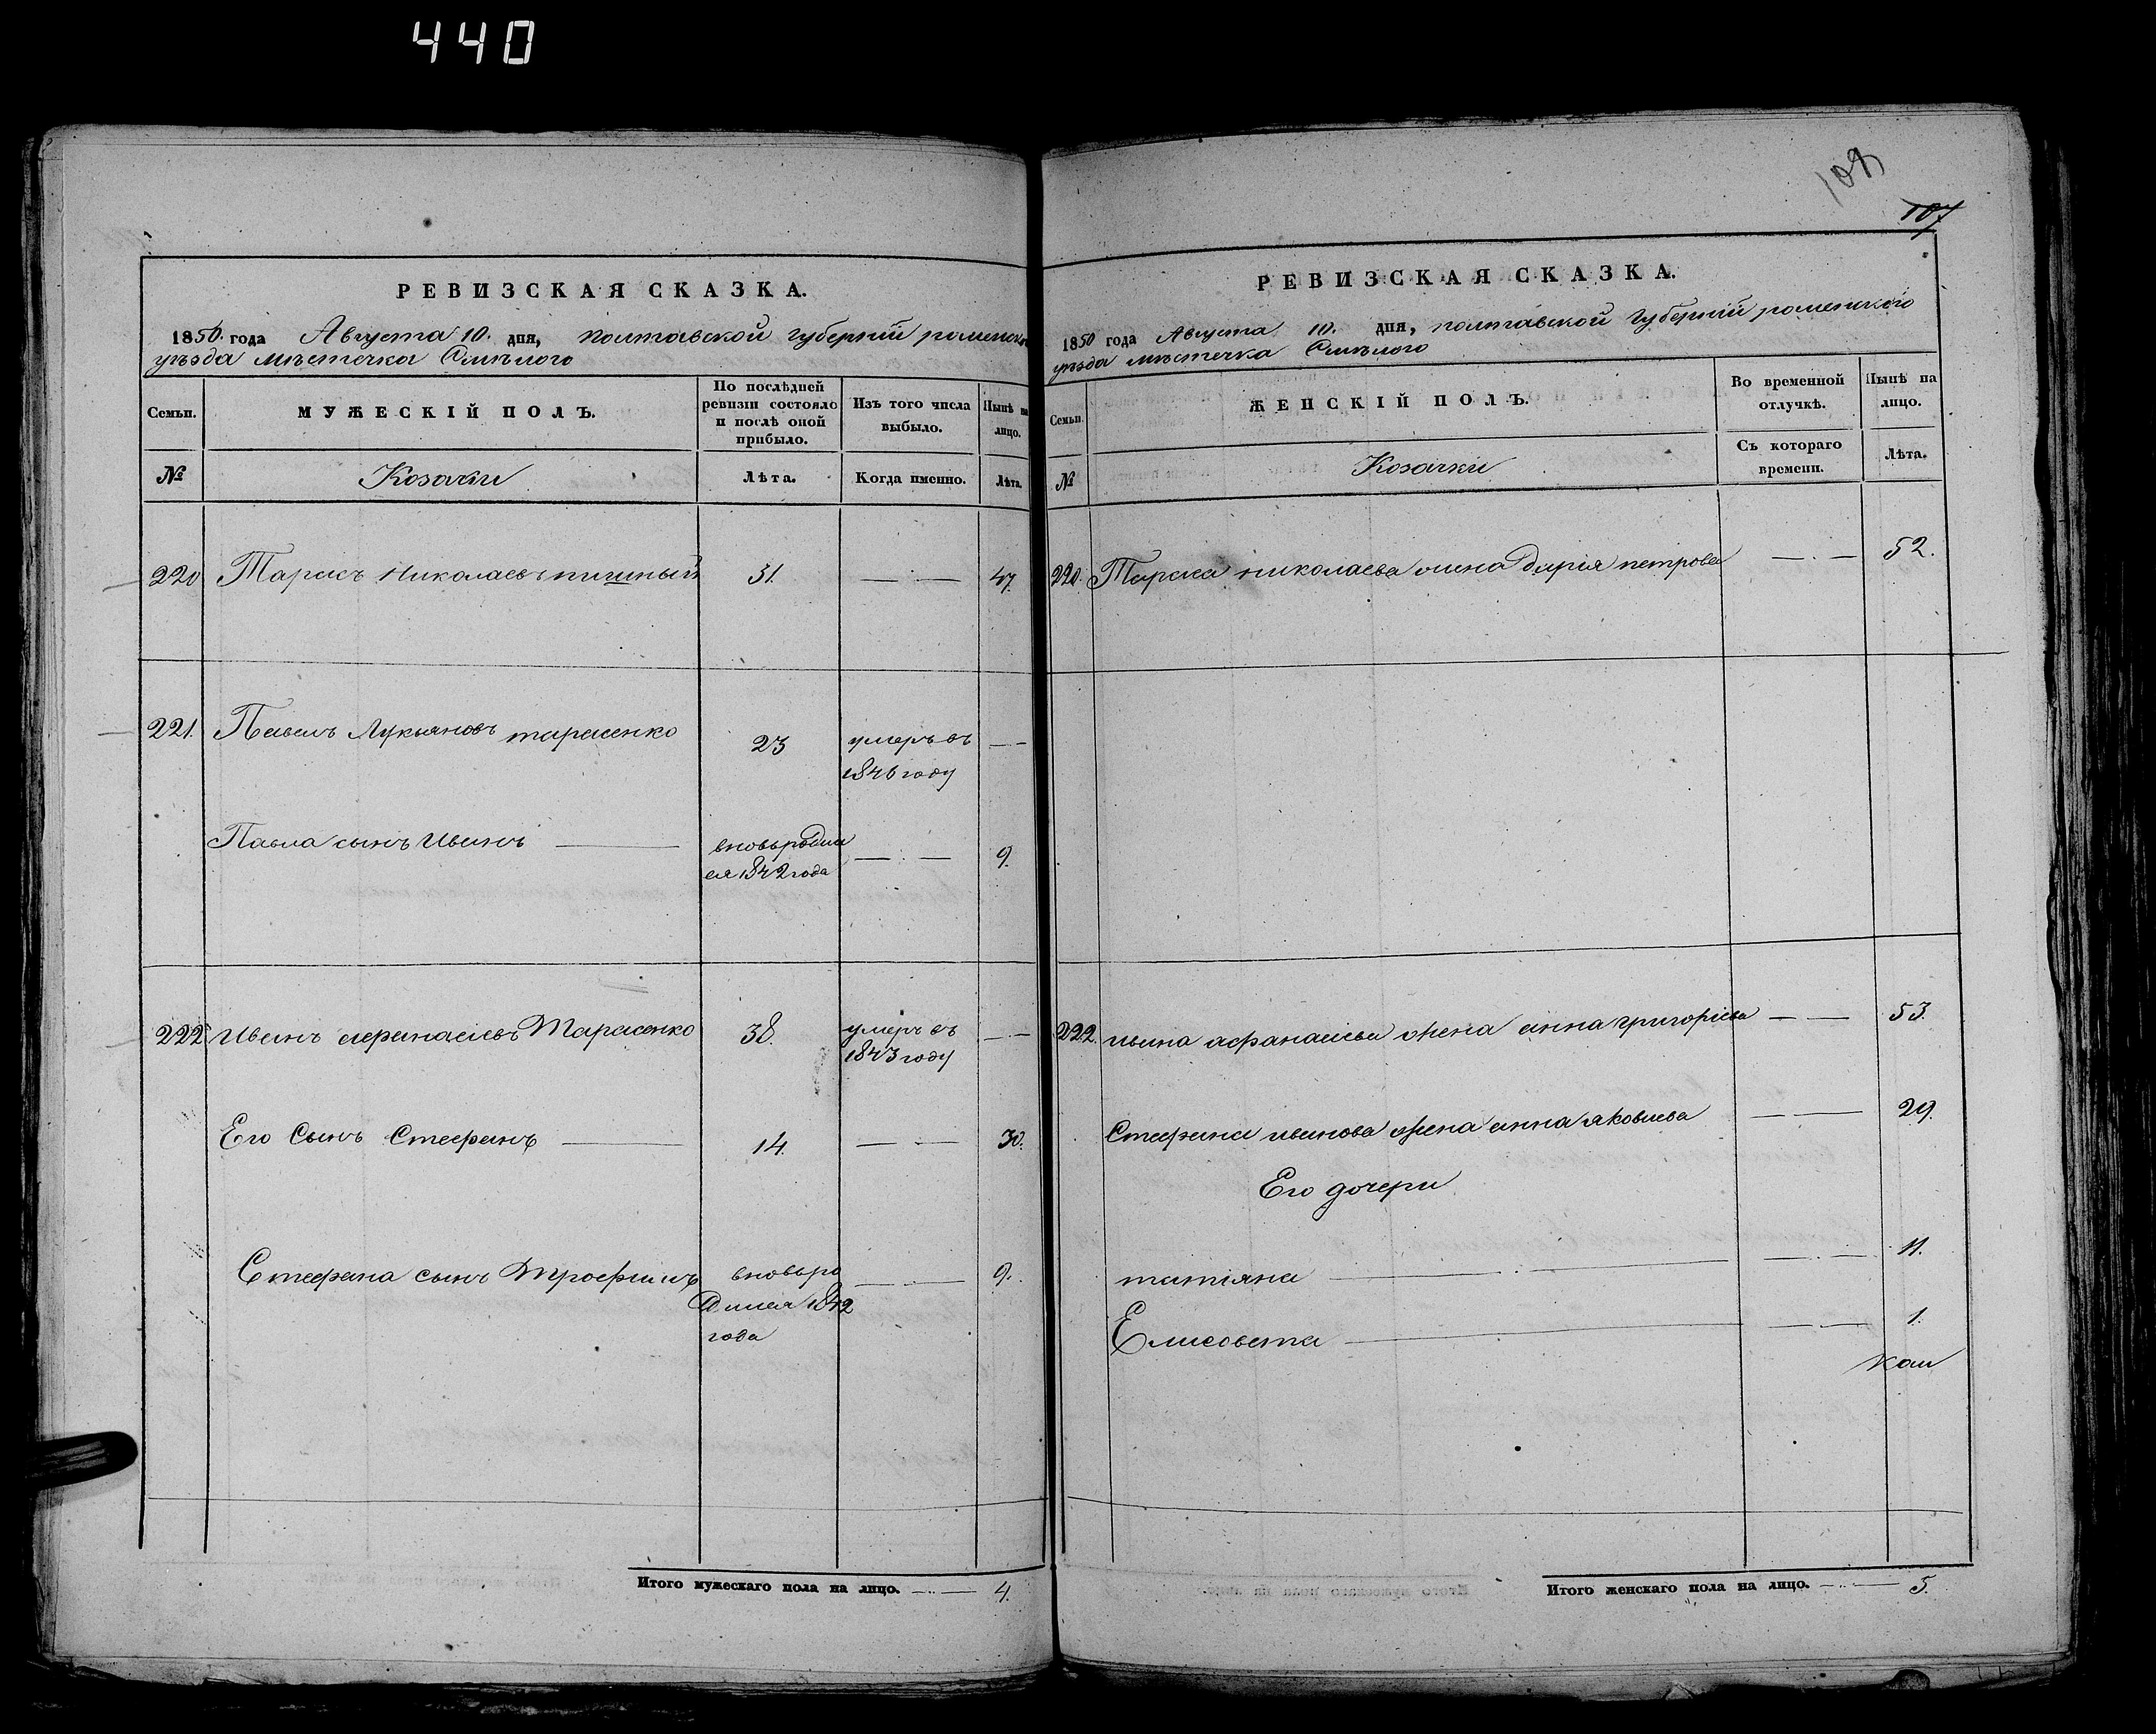 440
РЕВИЗСКАЯ СКАЗКА.
1850. года Августа 10. дня, полтавской губерніи роменско
уѣзда мѣстечка Смѣлого
Семьи.
МУЖЕСКІЙ ПОЛЪ.
По послѣдней
ревизіи состояло
и послѣ оной
прибыло.
Изъ того числа
выбыло.
Нынѣ на
лицо.
№
Козачки
Лѣта.
Когда именно.
Лѣта.
220 Тарасъ Николаевъ пишный 31. — . — 47.
221. Павелъ Лукьяновъ тарасенко 23 умеръ въ — —
1846 году
Павла сынъ Иванъ — вновь роди — . — 9.
ся 1842 года
222 Иванъ афанасіевъ Тарасенко 38. умеръ въ — —
1843 году
Его Сынъ Стефанъ — 14. — . — 30.
Стефана сынъ Трофимъ вновь ро — . — 9.
дился 1842
года
Итого мужескаго пола на лицо. — .. — 4.
109
107
РЕВИЗСКАЯ СКАЗКА.
1850 года Августа 10. дня, полтавской губерніи роменского
уѣзда мѣстечка Смѣлого
Семьи.
ЖЕНСКІЙ ПОЛЪ.
Во временной
отлучкѣ.
Нынѣ на
лицо.
№
Козачки
Съ котораго
времени.
Лѣта.
220. Тараса николаева жена Дарія петрова — . — 52.
222. ивана афанасіева жена анна григоріева — — 53.
Стефана иванова жена анна яковлева — — 29.
Его дочери
татіяна — . — 11.
Елисовета — — 1.
Итого женскаго пола на лицо. — .. — 5.